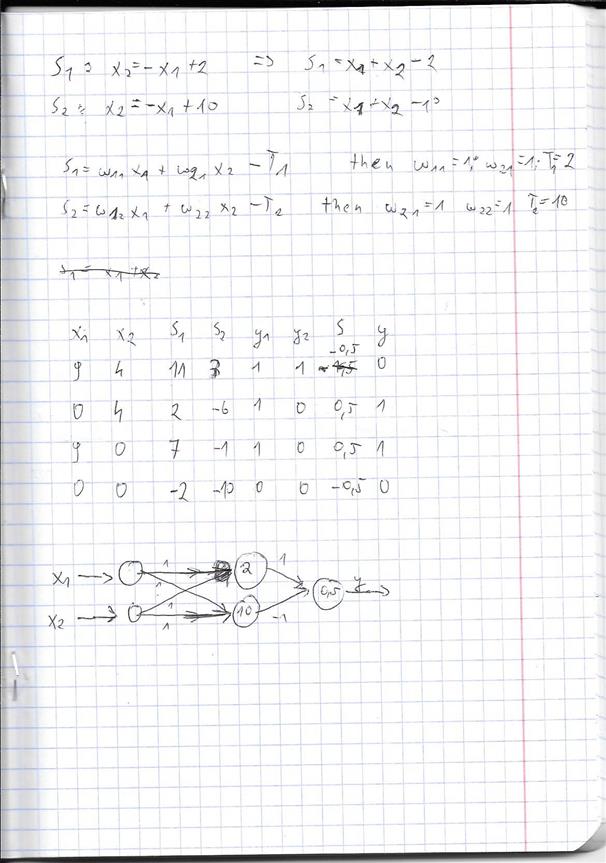 S1: x2=-x1+2 => S1=x1+x2-2
S2: x2=-x1+10 S2=x1+x2-10
S1=w11x1+w21x2-T1 then w11=1; w21=1; T1=2
S2=w12x1+w22x2-T2 then w21=1 w22=1 T2=10
x1 x2 S1 S2 y1 y2 S y
9 4 11 3 1 1 -0,5 0
0 4 2 -6 1 0 0,5 1
9 0 7 -1 1 0 0,5 1
0 0 -2 -10 0 0 -0,5 0
x1 1 2 1
1 0,5 y
x2 1 10 -1
1